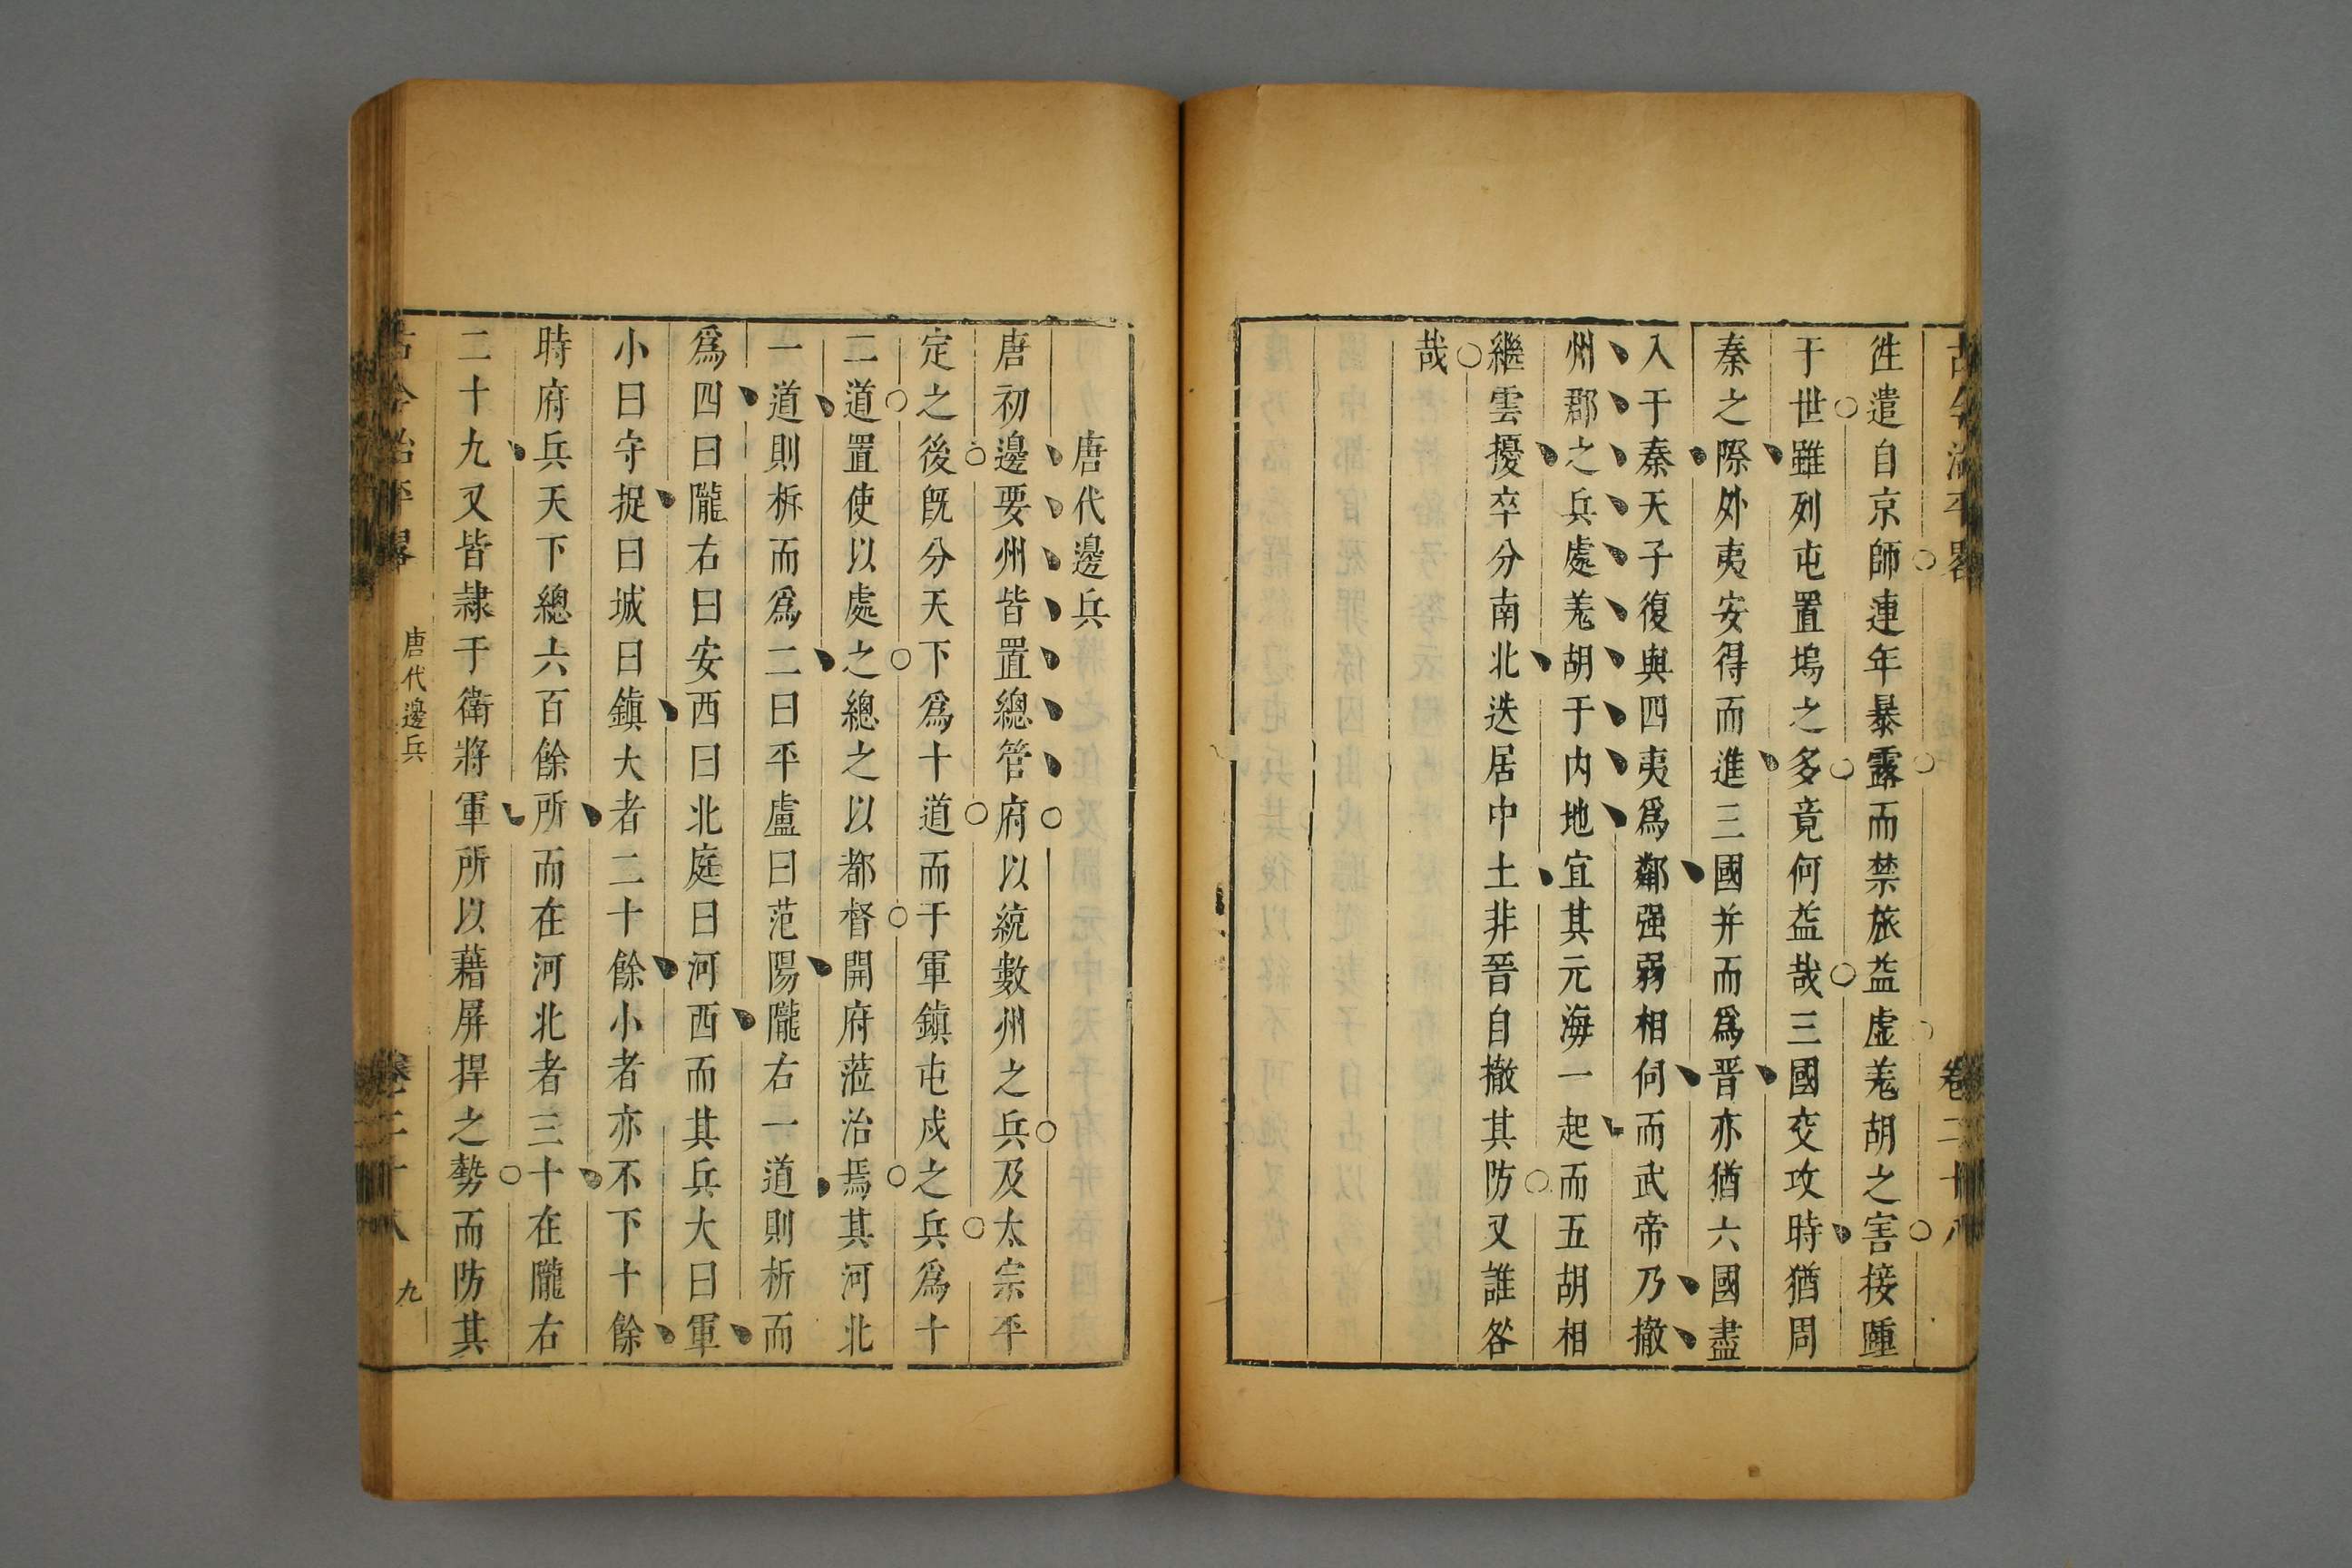 古今治平畧 卷二十八
徃遣自京師連年暴露而禁旅益虛羗胡之害接踵
于世雖列屯置塢之多竟何益哉三國交攻時猶周
秦之際外夷安得而進三國并而爲晋亦猶六國盡
入于秦天子復與四夷爲鄰强弱相伺而武帝乃撤
州郡之兵處羗胡于内地宜其元海一起而五胡相
繼雲擾卒分南北迭居中土非晉自撤其防又誰咎
哉
唐代邊兵
唐初邊要州皆置總管府以統數州之兵及太宗平
定之後旣分天下爲十道而于軍鎭屯戍之兵爲十
二道置使以處之總之以都督開府蒞治焉其河北
一道則柝而爲二曰平盧曰范陽隴右一道則析而
爲四曰隴右曰安西曰北庭曰河西而其兵大曰軍
小曰守捉曰城曰鎭大者二十餘小者亦不下十餘
時府兵天下總六百餘所而在河北者三十在隴右
二十九又皆隷于衛將軍所以藉屏捍之勢而防其
古今治平畧 唐代邊兵 卷二十八 九